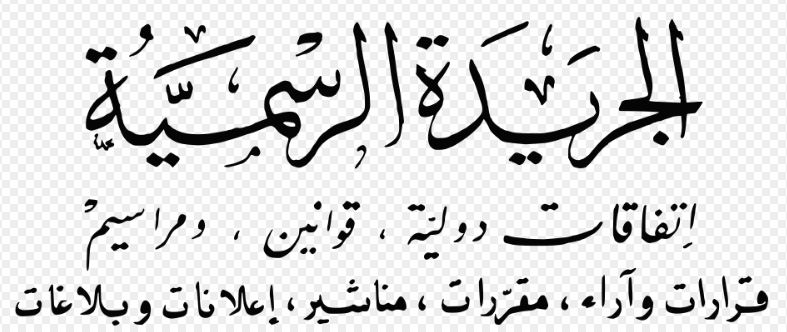 الجريدة الرسميّة
إتفاقات دوليّة ، قوانين ، ومراسيم
قرارات وآراء ، مقرّرات ، مناشير ، إعلانات وبلاغات